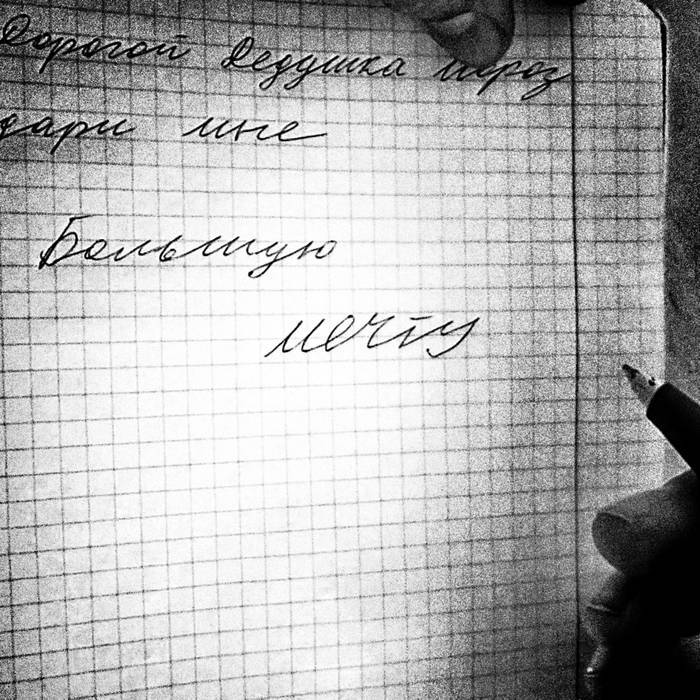 Дорогой Дедушка мороз
дари мне
Большую
мечту